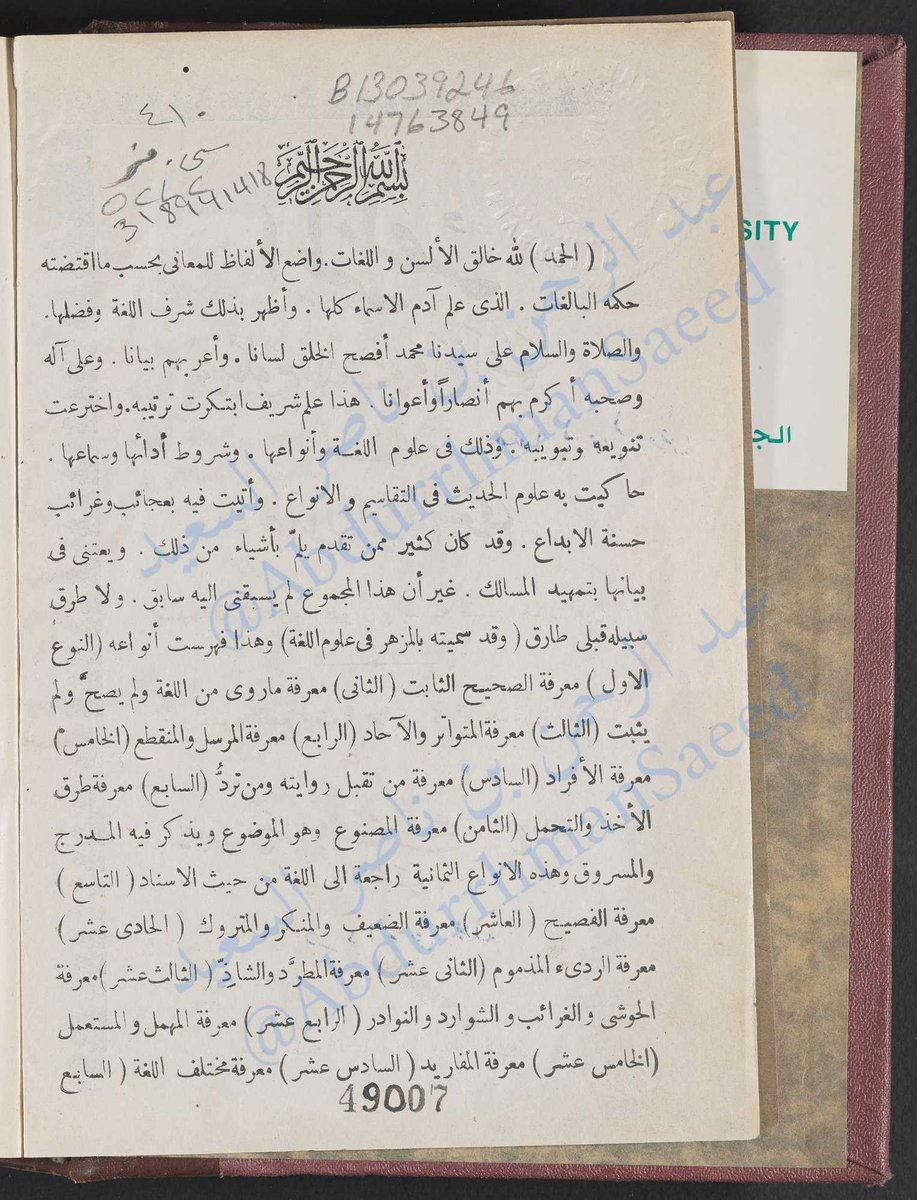 B13039246
14763849
٤١٠
318941418
بسم الله الرحمن الرحيم
SITY
( الحمد ) لله خالق الألسن و اللغات . واضع الألفاظ للمعانى بحسب ما اقتضته
حكمه البالغات . الذى علم آدم الاسماء كلها . وأظهر بذلك شرف اللغة وفضلها .
والصلاة والسلام على سيدنا محمد أفصح الخلق لسانا . وأعربهم بيانا . وعلى آله
وصحبه أكرم بهم أنصاراً وأعوانا . هذا علم شريف ابتكرت ترتيبه . واخترعت
تنويعه وتبويبه . وذلك فى علوم اللغة وأنواعها . وشروط أدائها وسماعها .
حاكيت به علوم الحديث فى التقاسيم والانواع . وأتيت فيه بعجائب وغرائب
حسنة الابداع . وقد كان كثير ممن تقدم يلمّ بأشياء من ذلك . ويعتنى فى
بيانها بتمهيد المسالك . غير أن هذا المجموع لم يسبقنى اليه سابق . ولا طرق
سبيله قبلى طارق ( وقد سميته بالمزهر فى علوم اللغة ) وهذا فهرست أنواعه ( النوع
الاول ) معرفة الصحيح الثابت ( الثانى ) معرفة ماروى من اللغة ولم يصحَّ ولم
يثبت ( الثالث ) معرفة المتواتر والآحاد ( الرابع ) معرفة المرسل والمنقطع ( الخامس )
معرفة الأفراد ( السادس ) معرفة من تقبل روايته ومن تردُّ ( السابع ) معرفة طرق
الأخذ والتحمل ( الثامن ) معرفة المصنوع وهو الموضوع ويذكر فيه المدرج
والمسروق وهذه الانواع الثمانية راجعة الى اللغة من حيث الاسناد ( التاسع )
معرفة الفصيح ( العاشر ) معرفة الضعيف والمنكر والمتروك ( الحادى عشر )
معرفة الردىء المذموم ( الثانى عشر ) معرفة المطرَّد والشاذّ ( الثالث عشر ) معرفة
الحوشى والغرائب و الشوارد والنوادر ( الرابع عشر ) معرفة المهمل والمستعمل
( الخامس عشر ) معرفة المفاريد ( السادس عشر ) معرفة مختلف اللغة ( السابع
49007
عبد الرحمن بن ناصر السعيد
@AbdurrhmanSaeed
عبد الرحمن بن ناصر السعيد
@AbdurrhmanSaeed